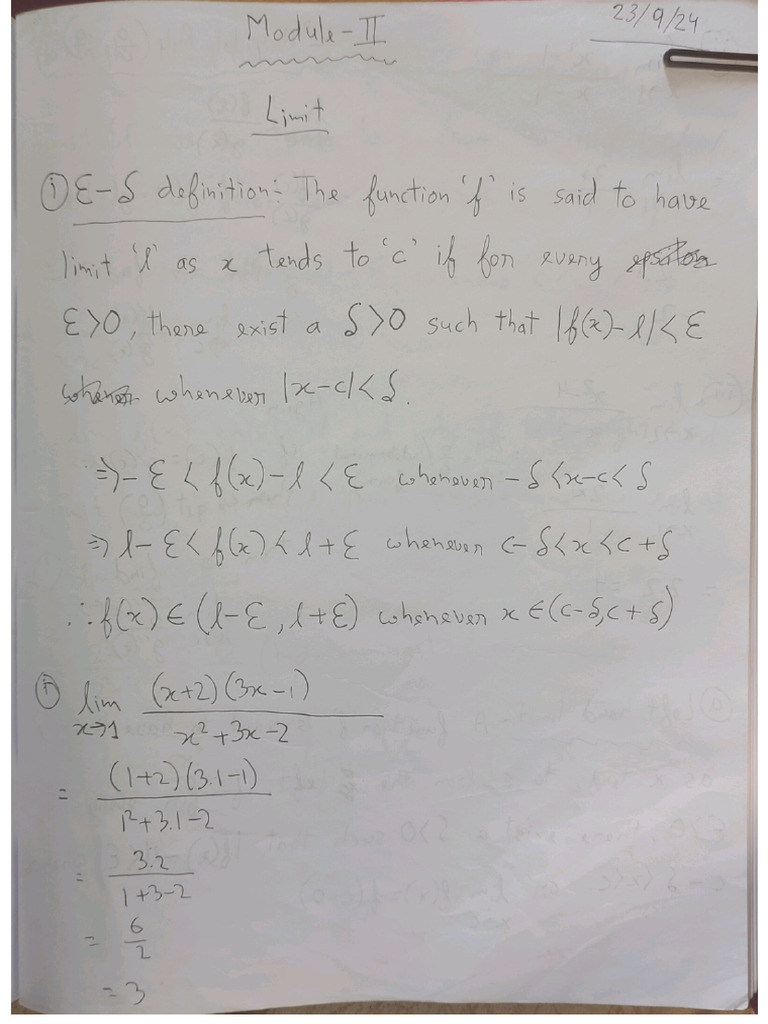 23/9/24
Module-II
Limit
① ε-δ definition:- The function 'f' is said to have
limit 'l' as x tends to 'c' if for every
ε>0, there exist a δ>0 such that |f(x)-l|<ε
whenever |x-c|<δ.
⇒ -ε < f(x)-l < ε whenever -δ<x-c<δ
⇒ l-ε < f(x) < l+ε whenever c-δ<x<c+δ
∴ f(x) ∈ (l-ε, l+ε) whenever x ∈ (c-δ, c+δ)
① lim x→1 (x+2)(3x-1) / x²+3x-2
= (1+2)(3.1-1) / 1²+3.1-2
= 3.2 / 1+3-2
= 6/2
= 3